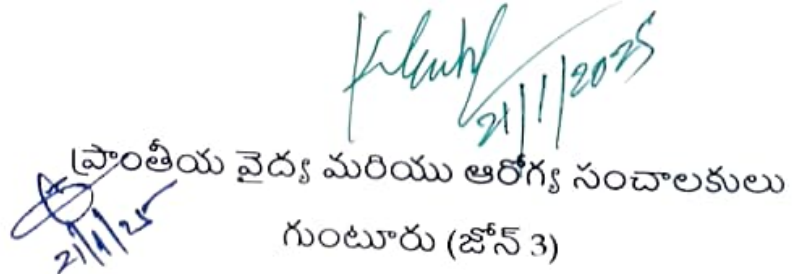 21/1/2025
ప్రాంతీయ వైద్య మరియు ఆరోగ్య సంచాలకులు
21/1/25
గుంటూరు (జోన్ 3)